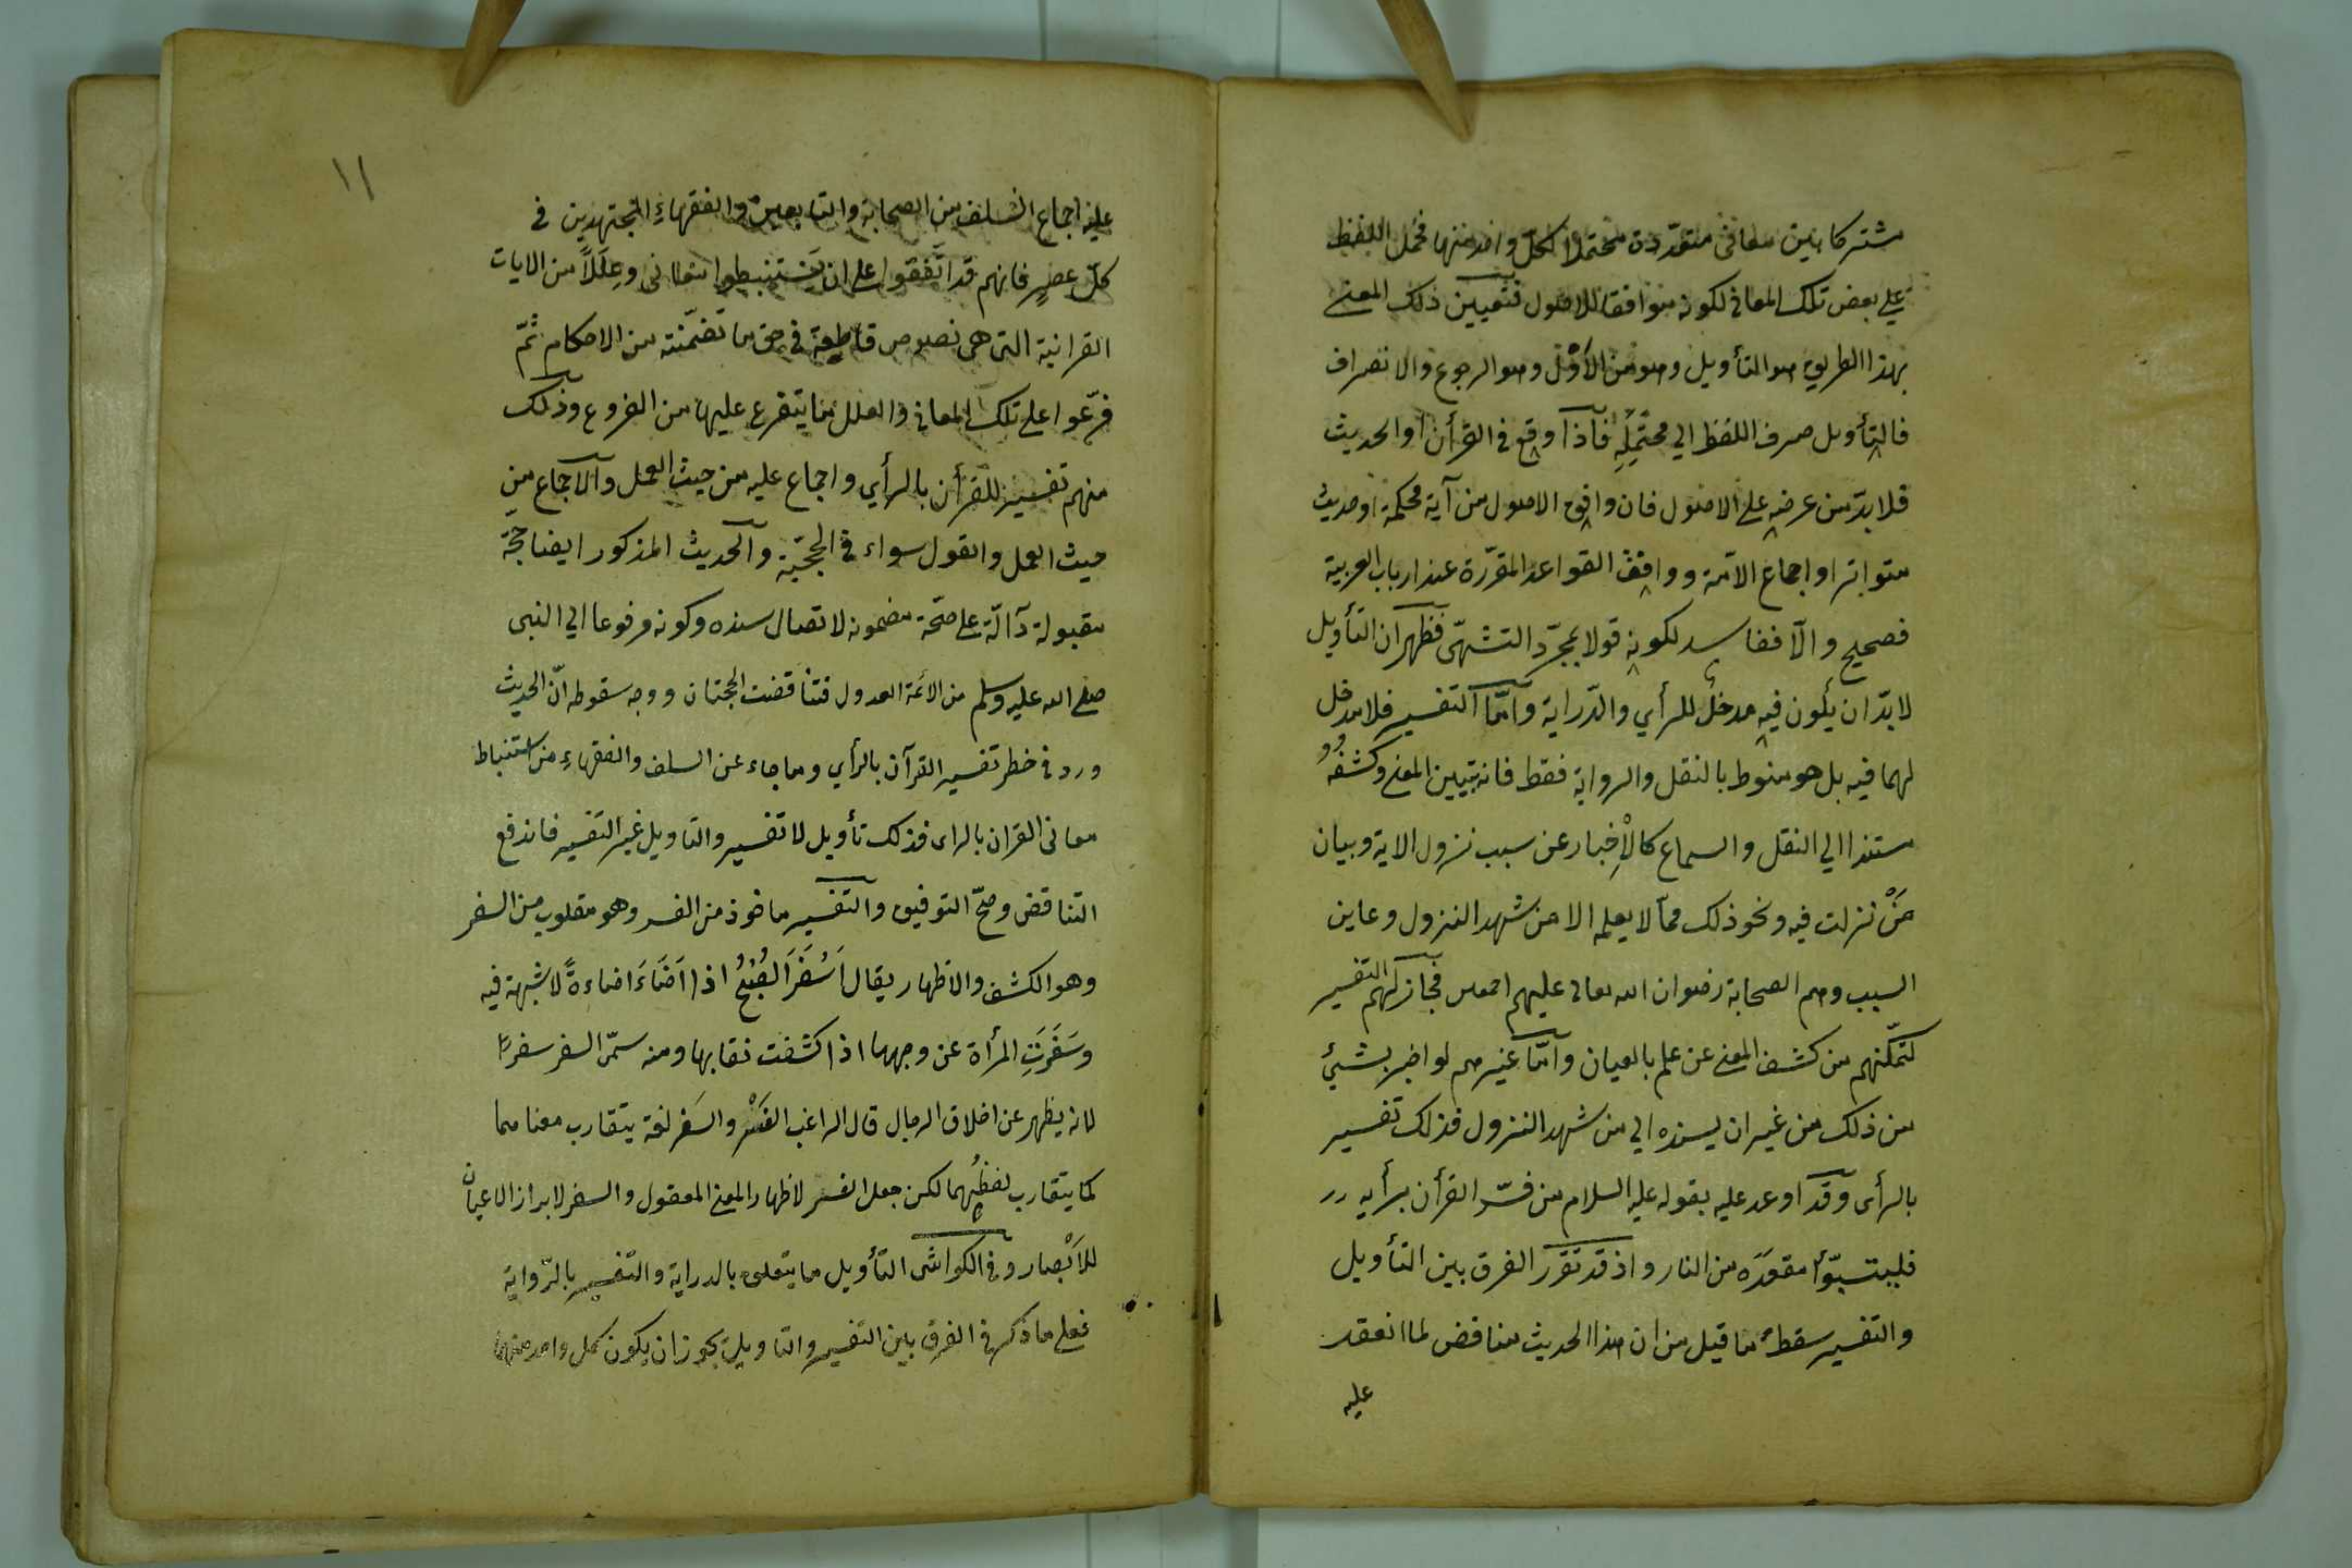 مشتركا بين معانى متعدّدة محتملا لكل واحد منها فحمل اللفظ
على بعض تلك المعانى لكونه موافقا للاصول فتعيين ذلك المعنى
بهذا الطريق هو التأويل وهو من الأَوْل وهو الرجوع والانصراف
فالتأويل صرف اللفظ الي محتمله فاذا وقع فى القرأن او الحديث
فلا بدّ من عرضه على الاصول فان وافق الاصول من آية محكمة او حديث
متواتر او اجماع الامّة ووافق القواعد المقرّرة عند ارباب العربية
فصحيح والّا ففاسد لكونه قولا بمجرّد التشهّى فظهر ان التأويل
لا بدّ ان يكون فيه مدخلٌ للرأي والدّراية وامّا التفسير فلا مدخل
لهما فيه بل هو منوط بالنقل والرواية فقط فانه تبيين المعنى وكشفُهُ
مستندا الي النقل والسماع كالْاِخبار عن سبب نزول الاية وبيان
مَنْ نزلت فيه ونحو ذلك ممّا لا يعلمه الا من شهد النزول وعاين
السبب وهم الصحابة رضوان الله تعالى عليهم اجمعين فجاز لهم التفسير
لتمكّنهم من كشف المعنى عن علم بالعيان وامّا غيرهم لو اخبر بشيئ
من ذلك من غير ان يسنده الي من شهد النزول فذلك تفسير
بالرأى وقد اوعد عليه بقوله عليه السلام من فسّر القرأن برأيه
فليتبوّأ مقعدَه من النار واذ قد تقرّر الفرق بين التأويل
والتفسير سقط ما قيل من ان هذا الحديث مناقض لما انعقد
عليه
١١
عليه اجماع السّلف من الصحابة والتابعين والفقهاءِ المجتهدين فى
كلّ عصرٍ فانهم قد اتّفقوا على ان يَستنبطوا معانى وعِلَلاً من الايات
القرانية التى هى نصوص قاطعة فى حق ما تضمّنته من الاحكام ثمّ
فرّعوا على تلك المعانى والعلل ما يتفرع عليها من الفروع وذلك
منهم تفسير للقرأن بالرأي واجماع عليه من حيث العمل والاجماع من
حيث العمل والقول سواء فى الحجيّة والحديث المذكور ايضا حجّة
مقبولة دآلّة على صحّة مضمونه لاتصال سنده وكونه مرفوعا الي النبى
صلى الله عليه وسلم من الائمّة العدول فتناقضت الحجتان ووجه سقوطه انّ الحديث
ورد فى خطر تفسير القرآن بالرأي وما جاء عن السلف والفقهاءِ من استنباط
معانى القران بالراى فذلك تأويل لا تفسير والتاويل غير التفسير فاندفع
التناقض وصحّ التوفيق والتفسير ماخوذ من الفسر وهو مقلوب من السفر
وهو الكشف والاظهار يقال اَسْفَرَ الصُبْحُ اذا اَضَاءَ اضاءةً لا شبهة فيه
وسَفَرَتِ المرأة عن وجهها اذا كشفت نقابها ومنه سمّى السفر سفرًا
لانه يظهر عن اخلاق الرجال قال الراغب الفَسْر والسَفر لغة يتقارب معناهما
كما يتقارب لفظُهما لكن جعل الفسر لاظهار المعنى المعقول والسفر لابراز الاعيان
للاَبْصار وفى الكواشى التأويل ما يتعلق بالدراية والتفسير بالرّواية
فعلى ما ذكر فى الفرق بين التفسير والتاويل يجوز ان يكون كل واحد منهما